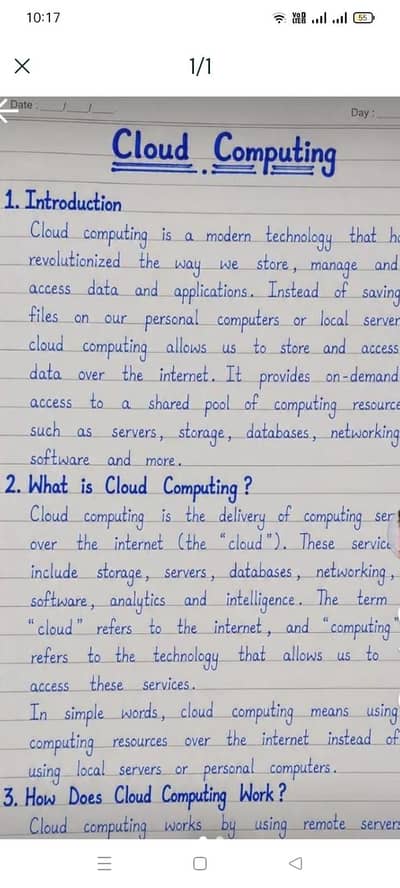 10:17
55
1/1
Date : ___/___/___
Day :
Cloud Computing
1. Introduction
Cloud computing is a modern technology that
revolutionized the way we store, manage and
access data and applications. Instead of saving
files on our personal computers or local server
cloud computing allows us to store and access
data over the internet. It provides on-demand
access to a shared pool of computing resource
such as servers, storage, databases, networking
software and more.
2. What is Cloud Computing ?
Cloud computing is the delivery of computing ser
over the internet (the "cloud"). These service
include storage, servers, databases, networking,
software, analytics and intelligence. The term
"cloud" refers to the internet, and "computing"
refers to the technology that allows us to
access these services.
In simple words, cloud computing means using
computing resources over the internet instead of
using local servers or personal computers.
3. How Does Cloud Computing Work ?
Cloud computing works by using remote servers